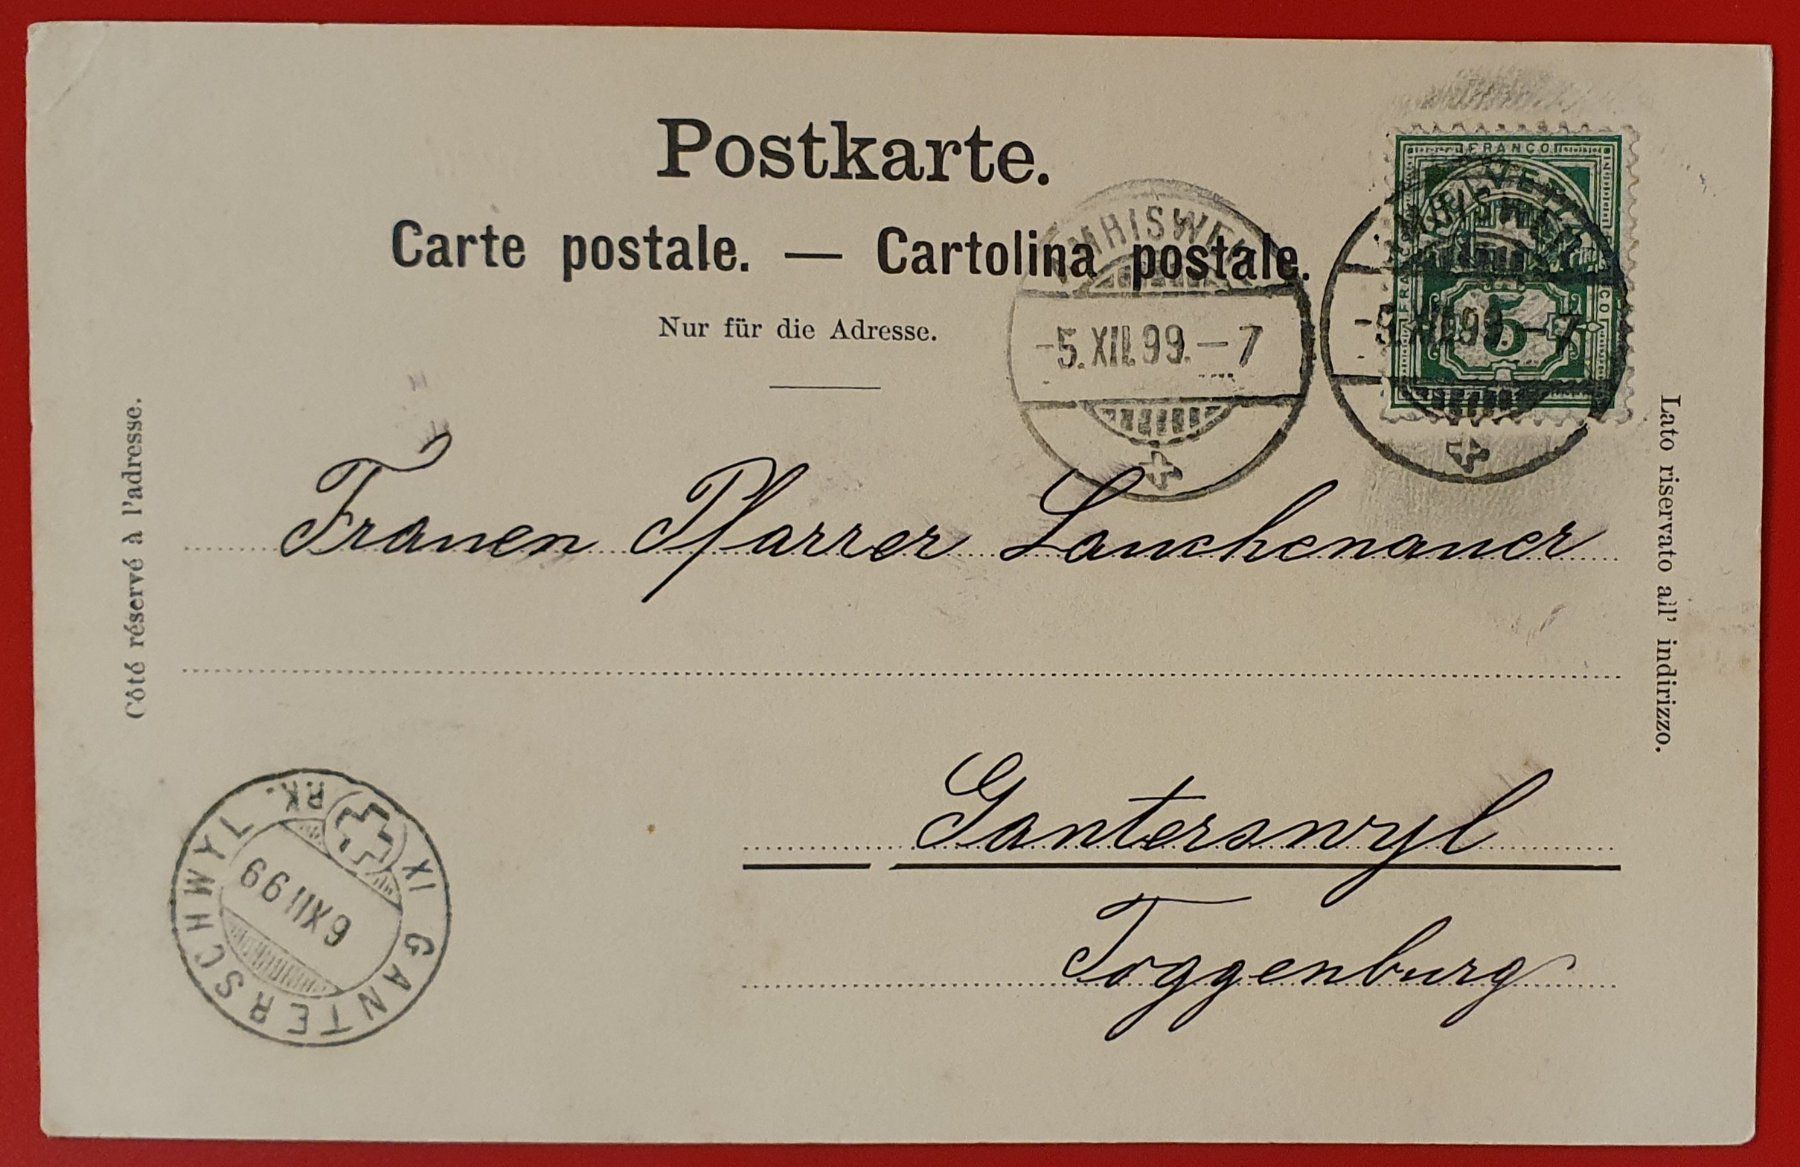 Postkarte.
Carte postale. — Cartolina postale.
Nur für die Adresse.
FRANCO
HELVETIA
FRANCO
FRANCO
5
AMRISWEIL
-5.XII.99.-7
AMRISWEIL
-5.XII.99.-7
Côté réservé à l'adresse.
Lato riservato all' indirizzo.
Frauen Pfarrer Lauchenauer
Ganterswyl
Toggenburg
GANTERSCHWYL. RK.
XI
6 XII 99